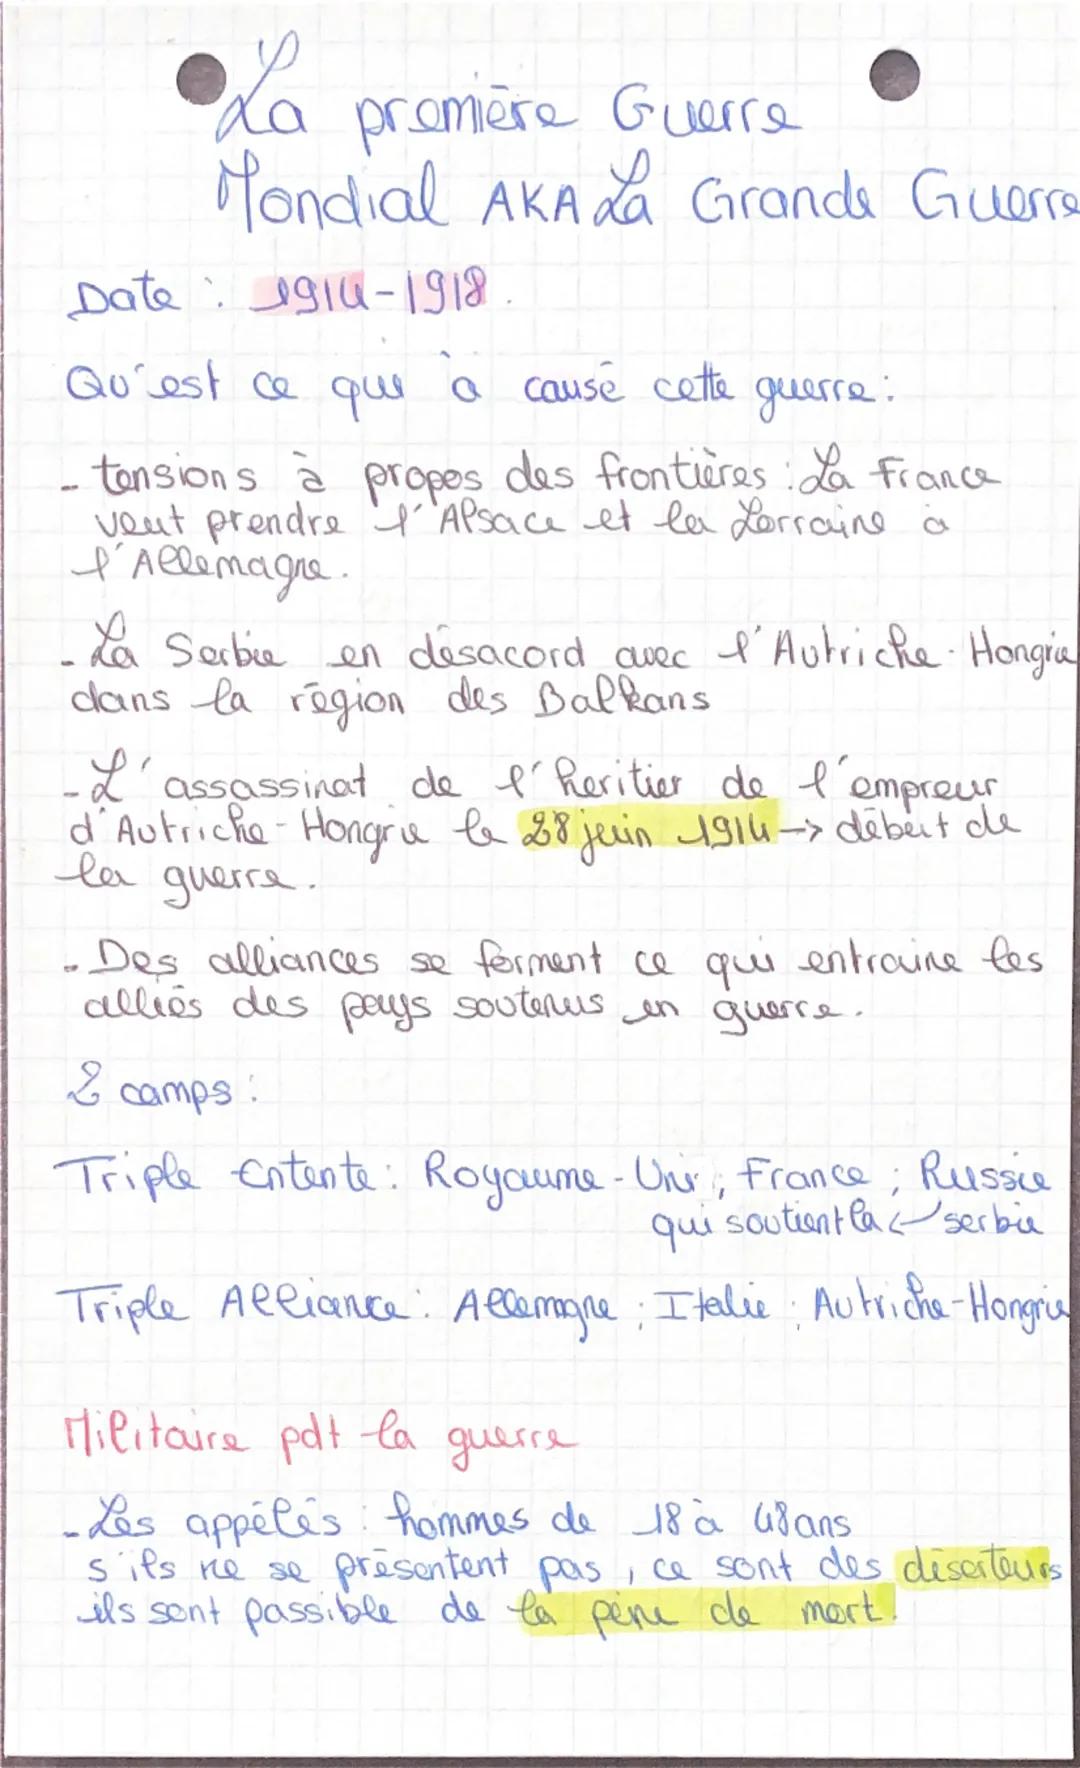 La première Guerre
Mondial AKA La Grande Guerre
Date : 1914-1918.
Qu'est ce qui à causé cette guerre :
- tensions à propos des frontières : La France
veut prendre l'Alsace et la Lorraine à
l'Allemagne.
- La Serbie en désacord avec l'Autriche-Hongrie
dans la région des Balkans
- L'assassinat de l'heritier de l'empreur
d'Autriche-Hongrie le 28 juin 1914 -> début de
la guerre.
- Des alliances se forment ce qui entraine les
alliés des pays soutenus en guerre.
2 camps :
Triple Entente : Royaume-Uni ; France ; Russie
qui soutient la <- serbie
Triple Alliance : Allemagne ; Italie ; Autriche-Hongrie
Militaire pdt la guerre
- Les appélés : hommes de 18 à 48 ans
s'ils ne se présentent pas, ce sont des déserteurs
ils sont passible de la pène de mort.